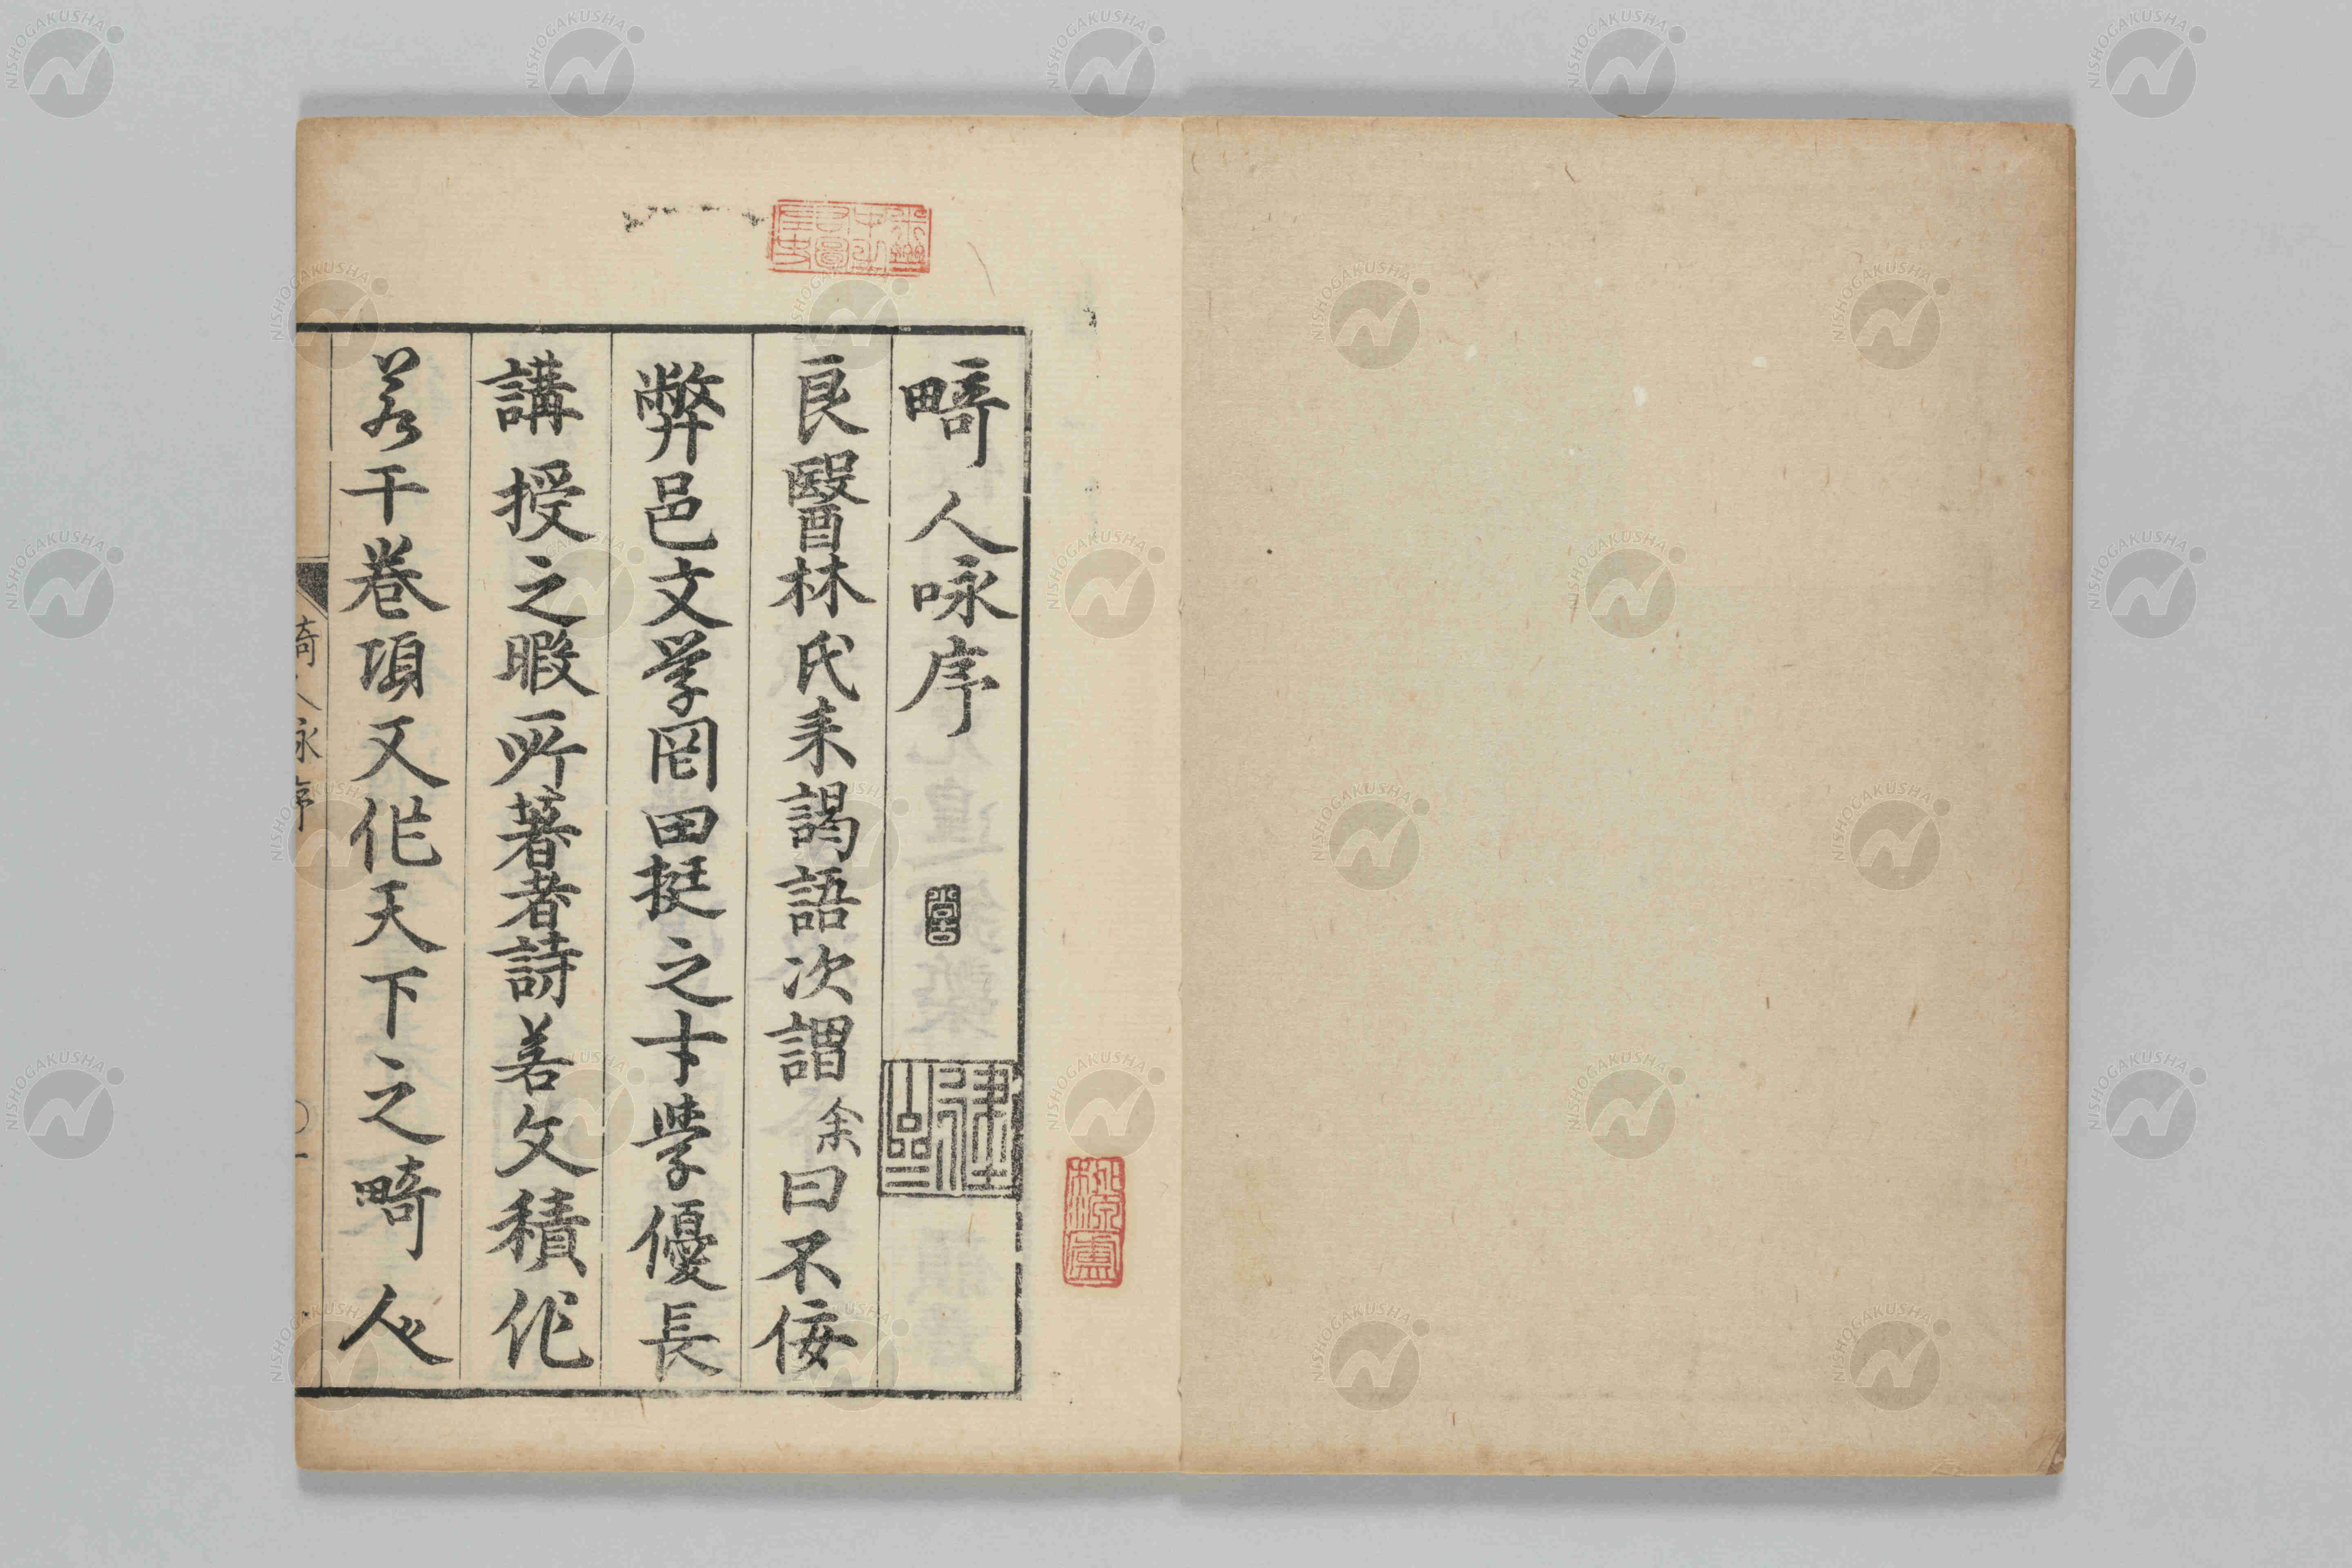 畸人咏序
良醫林氏来謁語次謂余曰不佞
弊邑文学罔田挺之才學優長
講授之暇所著者詩若文積作
若干巻項又作天下之畸人
畸人咏序
NISHOGAKUSHA